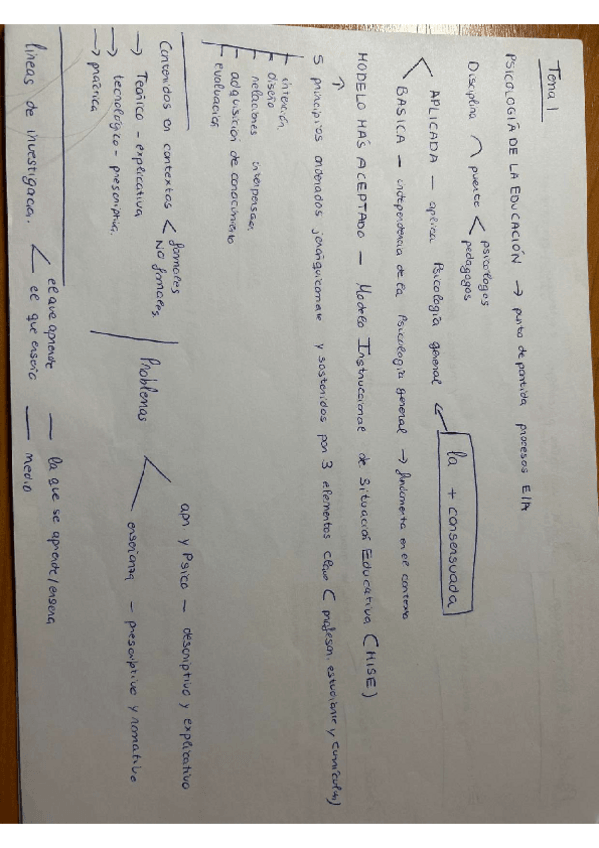 Tema 1
PSICOLOGÍA DE LA EDUCACIÓN → punto de partida procesos E/A
Disciplina puente < psicólogos
pedagogos
APLICADA — aplica Psicología general ← la + consensuada
BASICA — independencia de la Psicología general → fundamenta en el contexto
MODELO MÁS ACEPTADO — Modelo Instruccional de Situación Educativa (MISE)
5 principios ordenados jerárquicamente y sostenidos por 3 elementos clave (profesor, estudiante y currículum)
intención
diseño
relaciones interpersonales
adquisición de conocimiento
evaluación
Contenidos en contextos < formales
No formales
→ Teórico - explicativa
→ tecnológico - prescriptiva.
→ práctica
Problemas
apr y Psico — descriptivo y explicativo
enseñanza — prescriptivo y normativo
líneas de investigación. < el que aprende — lo que se aprende/enseña
el que enseña — medio